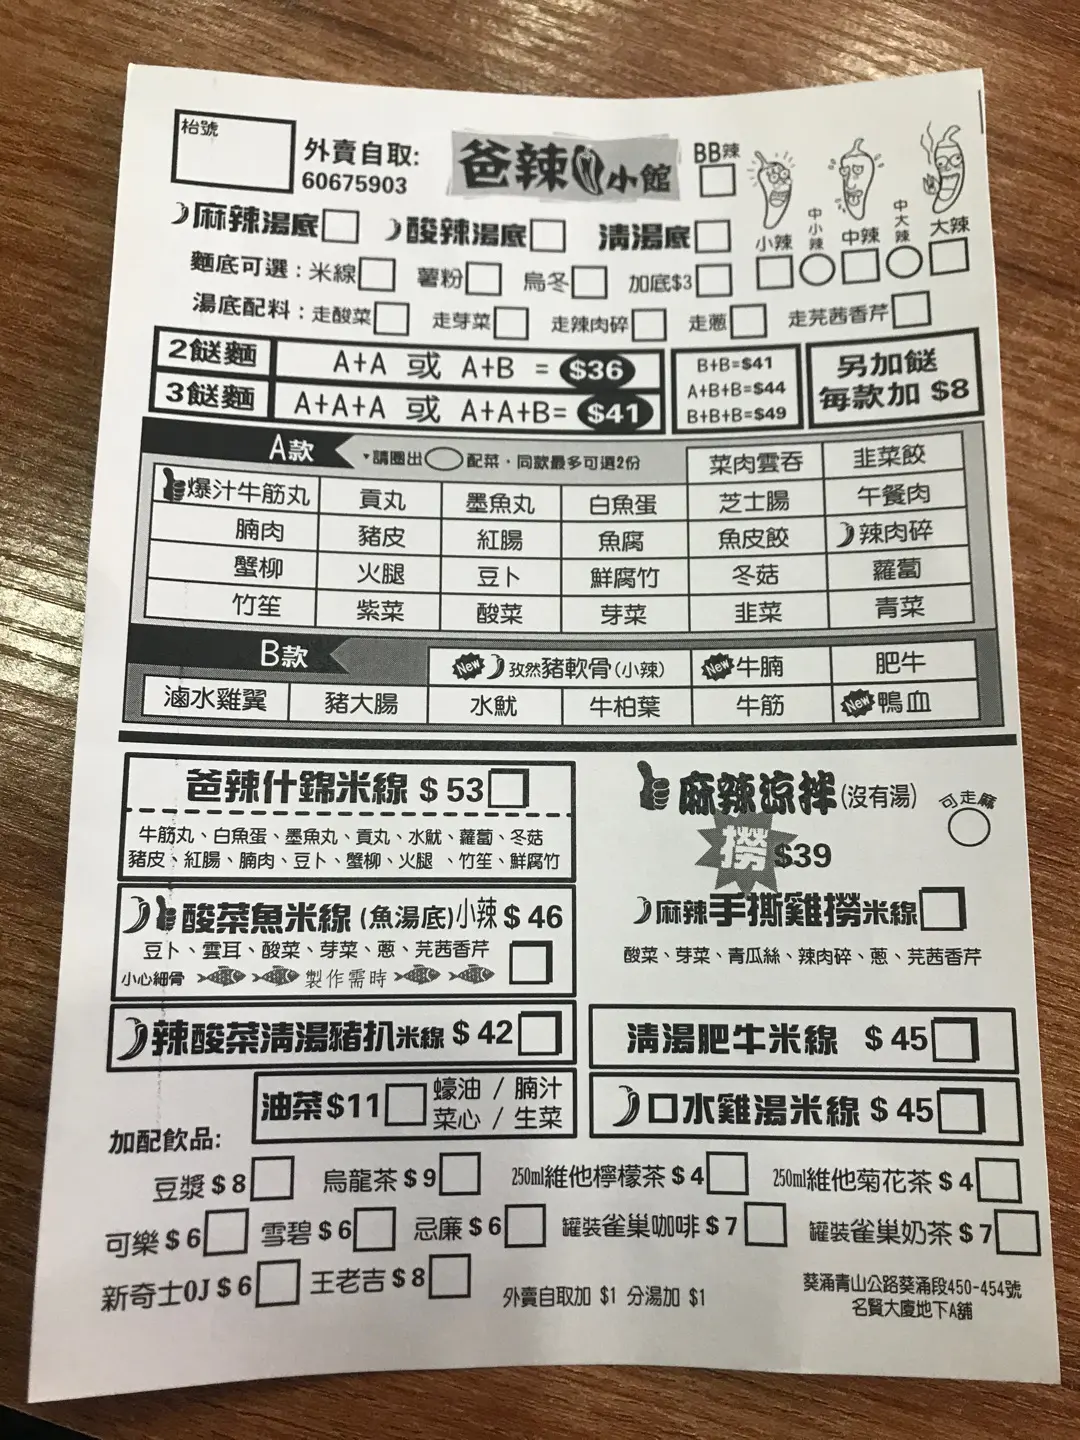 枱號
外賣自取:
60675903
爸辣小館
BB辣
小辣 中小辣 中辣 中大辣 大辣
麻辣湯底 酸辣湯底 清湯底
麵底可選：米線 薯粉 烏冬 加底$3
湯底配料：走酸菜 走芽菜 走辣肉碎 走蔥 走芫茜香芹
2餸麵 A+A 或 A+B = $36
3餸麵 A+A+A 或 A+A+B= $41
B+B=$41
A+B+B=$44
B+B+B=$49
另加餸
每款加 $8
A款 ▾請圈出 配菜，同款最多可選2份 菜肉雲吞 韭菜餃
爆汁牛筋丸 貢丸 墨魚丸 白魚蛋 芝士腸 午餐肉
腩肉 豬皮 紅腸 魚腐 魚皮餃 辣肉碎
蟹柳 火腿 豆卜 鮮腐竹 冬菇 蘿蔔
竹笙 紫菜 酸菜 芽菜 韭菜 青菜
B款 New 孜然豬軟骨(小辣) New 牛腩 肥牛
滷水雞翼 豬大腸 水魷 牛柏葉 牛筋 New 鴨血
爸辣什錦米線 $53
牛筋丸、白魚蛋、墨魚丸、貢丸、水魷、蘿蔔、冬菇
豬皮、紅腸、腩肉、豆卜、蟹柳、火腿、竹笙、鮮腐竹
麻辣涼拌(沒有湯) 可走麻
撈 $39
麻辣手撕雞撈米線
酸菜、芽菜、青瓜絲、辣肉碎、蔥、芫茜香芹
酸菜魚米線(魚湯底)小辣 $46
豆卜、雲耳、酸菜、芽菜、蔥、芫茜香芹
小心細骨 製作需時
辣酸菜清湯豬扒米線 $42
清湯肥牛米線 $45
油菜$11 蠔油 / 腩汁
菜心 / 生菜
口水雞湯米線 $45
加配飲品:
豆漿$8 烏龍茶$9 250ml維他檸檬茶$4 250ml維他菊花茶$4
可樂$6 雪碧$6 忌廉$6 罐裝雀巢咖啡$7 罐裝雀巢奶茶$7
新奇士OJ$6 王老吉$8 外賣自取加 $1 分湯加 $1
葵涌青山公路葵涌段450-454號
名賢大廈地下A舖